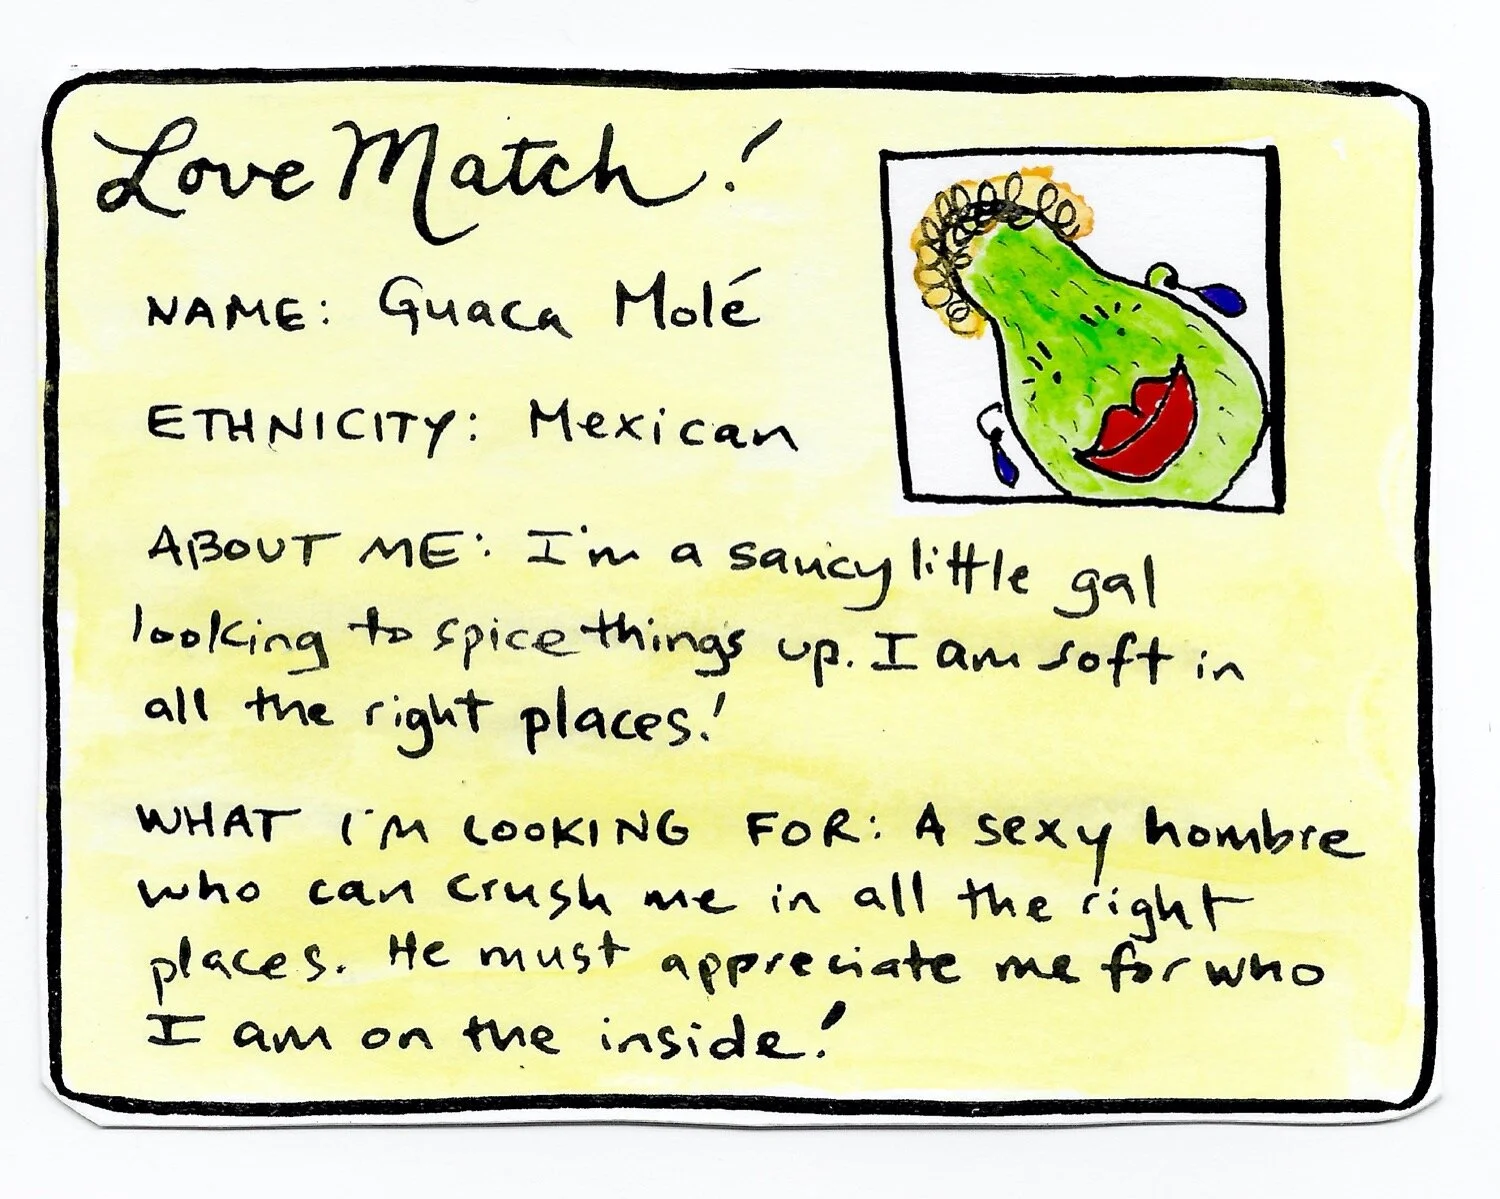 Love Match!
NAME: Guaca Molé
ETHNICITY: Mexican
ABOUT ME: I'm a saucy little gal
looking to spice things up. I am soft in
all the right places!
WHAT I'M LOOKING FOR: A sexy hombre
who can crush me in all the right
places. He must appreciate me for who
I am on the inside!